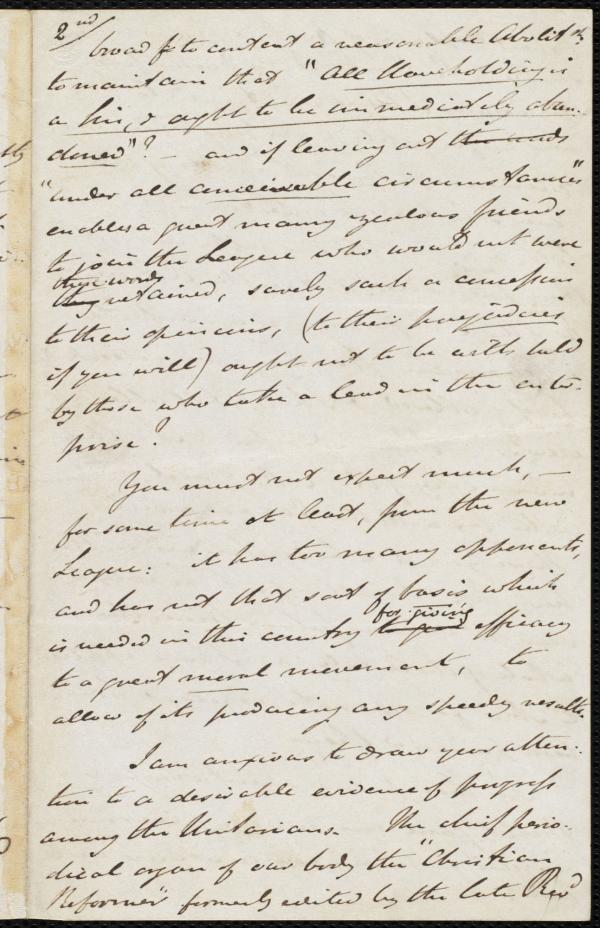 2nd
broad for to content a reasonable Abolitn.
to maintain that "All slaveholding is
a sin, & ought to be immediately aban-
doned"? – and if leaving out the words
"under all conceivable circumstances"
enables a great many zealous friends
to join the League who would not were
these words
they retained, surely such a concession
to their opinions, (to their prejudices
if you will) ought not to be withheld
by those who take a lead in the enter-
prise?
You must not expect much, –
for some time at least, from the new
League: it has too many opponents,
and has not that sort of basis which
for giving
is needed in this country to give efficacy
to a great moral movement, to
allow of its producing any speedy results.
I am anxious to draw your atten-
tion to a desirable evidence of progress
among the Unitarians. The chief perio-
dical organ of our body the "Christian
Reformer" formerly edited by the late Revd